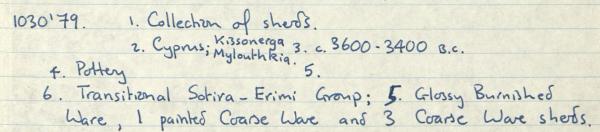 1030'79. 1. Collection of sherds.
2. Cyprus; Kissonerga Mylouthkia. 3. c. 3600-3400 B.C.
4. Pottery 5.
6. Transitional Sotira-Erimi Group; 5. Glossy Burnished
Ware, 1 painted Coarse Ware and 3 Coarse Ware sherds.